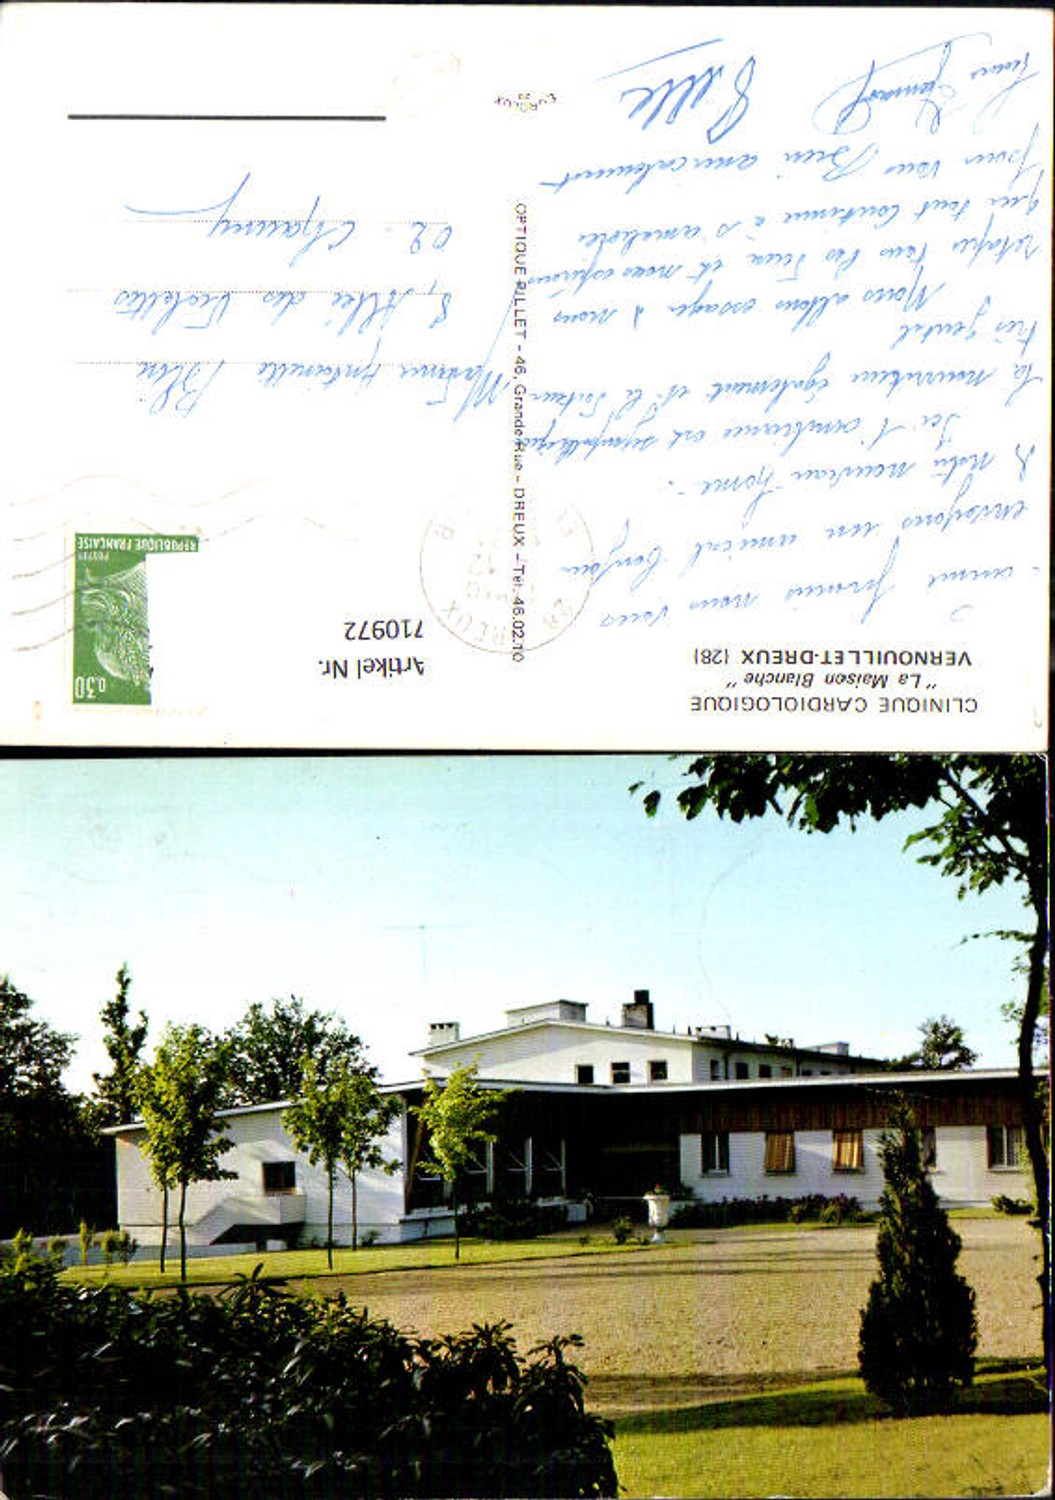 CLINIQUE CARDIOLOGIQUE
"La Maison Blanche"
VERNOUILLET-DREUX (28)
Artikel Nr.
710972
0,30
POSTES
REPUBLIQUE FRANÇAISE
28 DREUX
promis nous vous
envoyons un amical bonjour
de notre nouveau home.
Ici l'ambiance est sympathique
la nourriture également et le docteur
très gentil
Nous allons essayer de nous
retaper tous les deux et nous espérons
que tout continue à s'améliorer
pour vous Bien amicalement
OPTIQUE PILLET - 46, Grande Rue - DREUX - Tél. 46.02.10
Antoinette
8, Allée des Violettes
02 - Chauny
EUROLUX